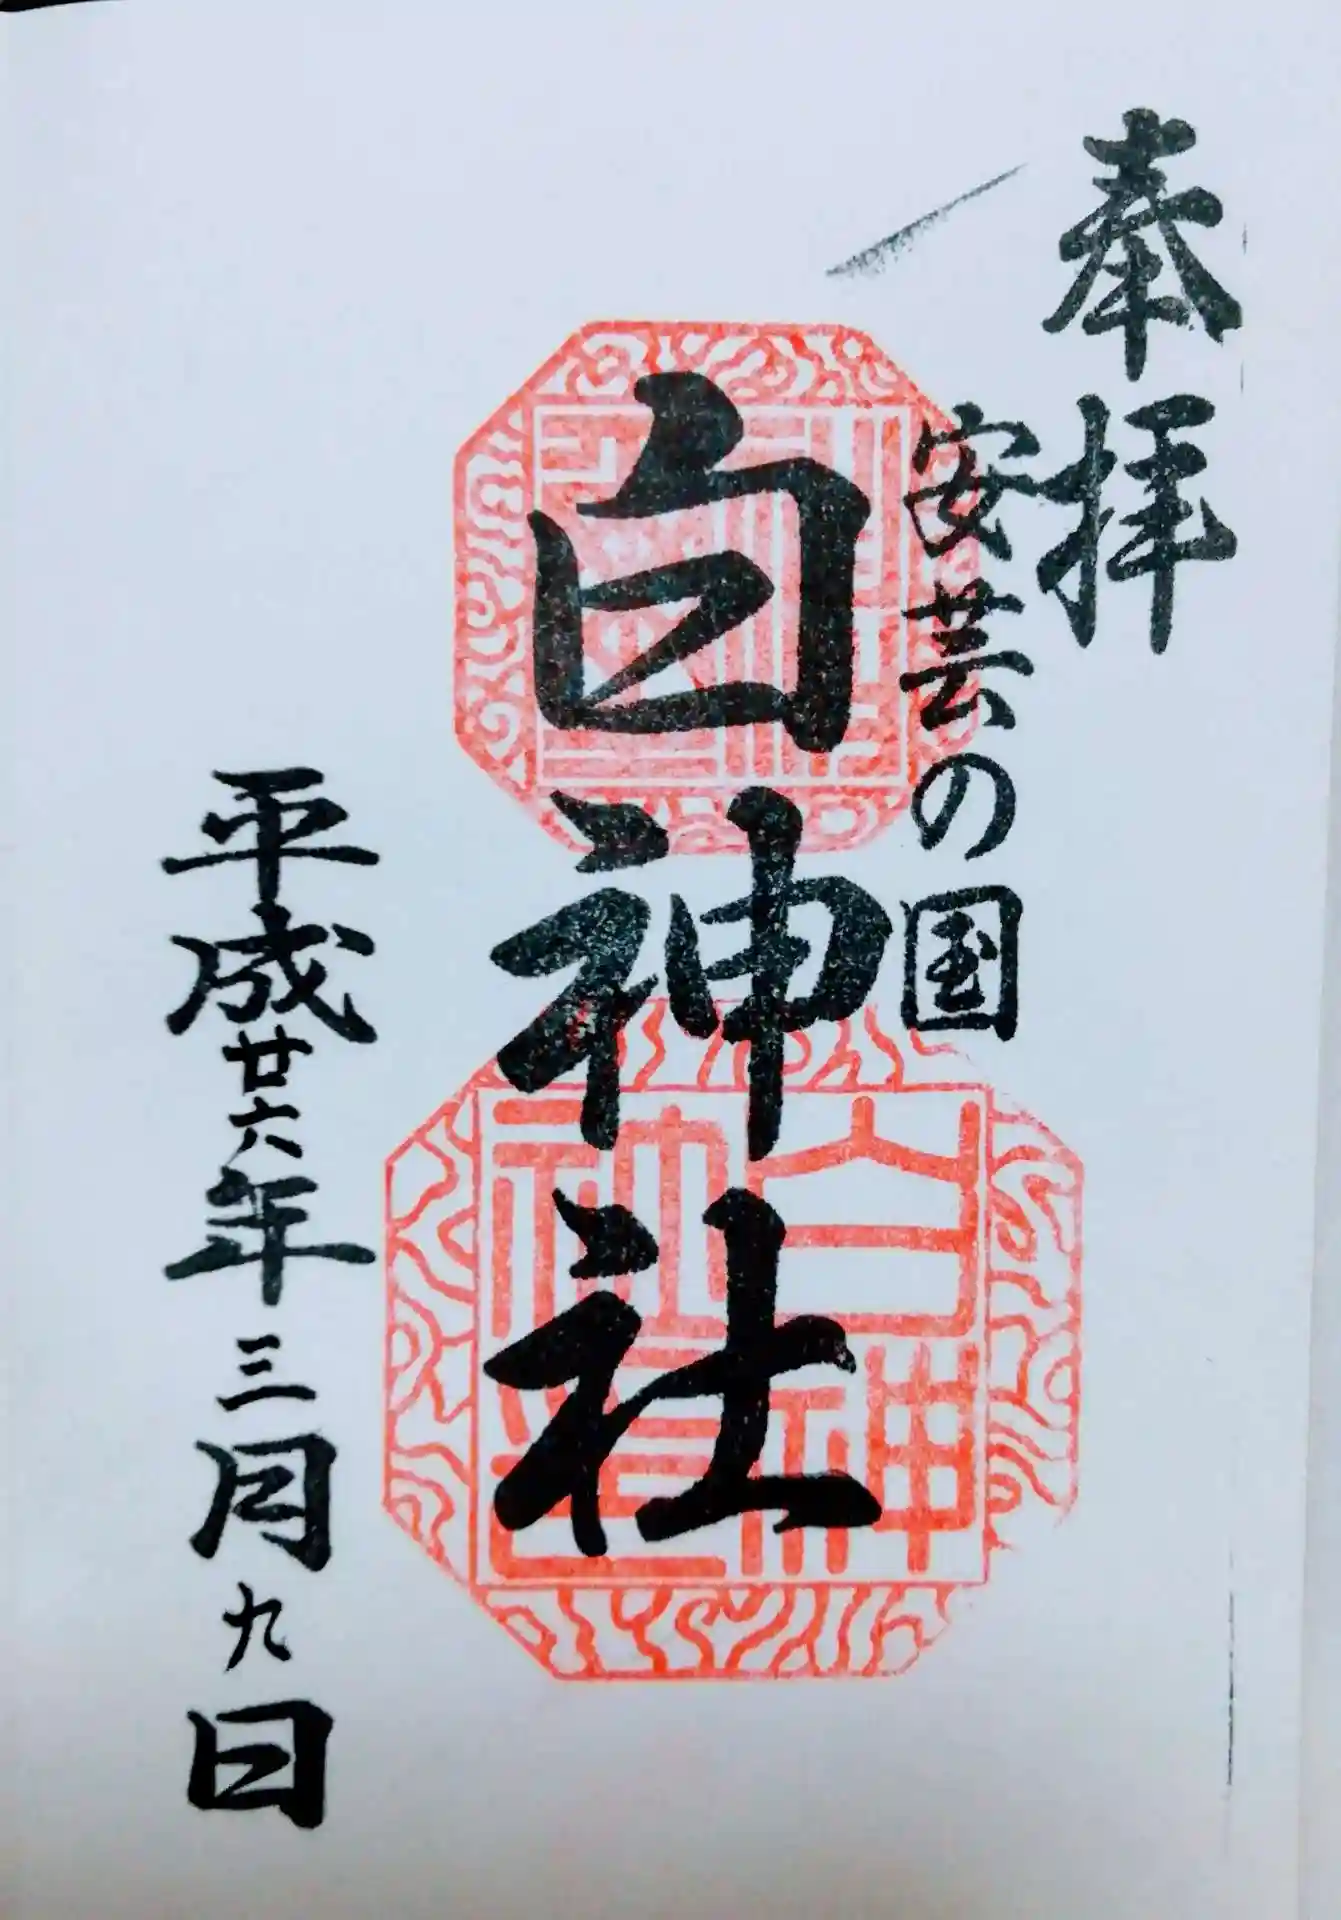 奉拝
安芸の国
白神社
平成廿六年三月九日
白神社印